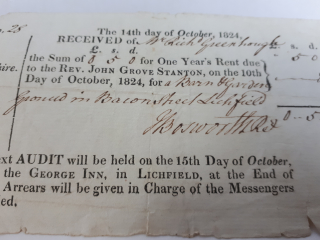 25
The 14th day of October, 1824,
RECEIVED of Mr Rich Greenhough
£. s. d.
s. d.
the Sum of 0 5 0 for One Year's Rent due
5 0
to the REV. JOHN GROVE STANTON, on the 10th
hire.
Day of October, 1824, for a Barn & Garden
Ground in Bacon Street Lichfield
0 5
J Bosworth
ext AUDIT will be held on the 15th Day of October,
the GEORGE INN, in LICHFIELD, at the End of
Arrears will be given in Charge of the Messengers
ed.